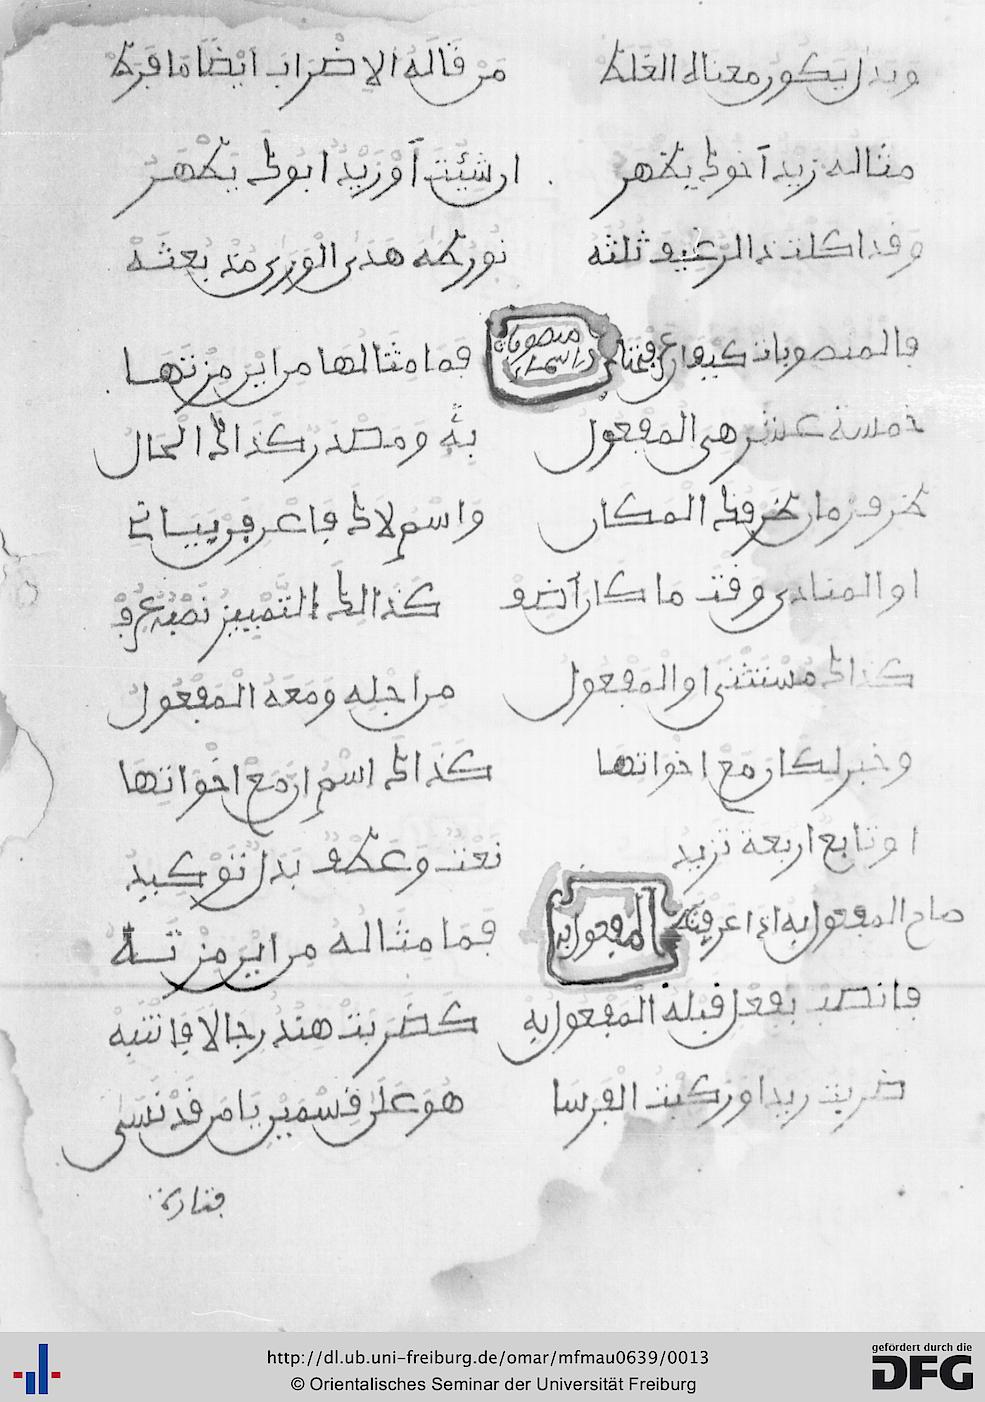 وبدل يكون معناه الغلط من قاله الاضراب ايضا ما فرط
مثاله زيد اخوك يظهر ان شئت او زيد ابوك يظهر
وقد اكلت ذا الرغيف ثلثه نور طه هدى الورى مذ بعثه
فالمنصوبات كيف عرفتها منصوبات الاسماء فما مثالها من اين مزتها
خمسة عشر هي المفعول به ومصدر كذاك الحال
ظرف زمان ظرفك المكان واسم لا فاعرف بيان
او المنادى وقت ما كان أضف كذلك التمييز نصبه عرف
كذاك مستثنى او المفعول من اجله ومعه المفعول
وخبر لكان مع اخواتها كذاك اسم ان مع اخواتها
او تابع اربعة تزيد نعت وعطف بدل توكيد
صاح المفعول به اذا عرفته المفعول به فما مثاله من اين مزته
فانصب بفعل قبله المفعول به كضربت هند رجالا فانتبه
ضربت زيدا وركبت الفرسا هو على قسمين يا من قد نسى
فتارة
http://dl.ub.uni-freiburg.de/omar/mfmau0639/0013
© Orientalisches Seminar der Universität Freiburg
gefördert durch die
DFG